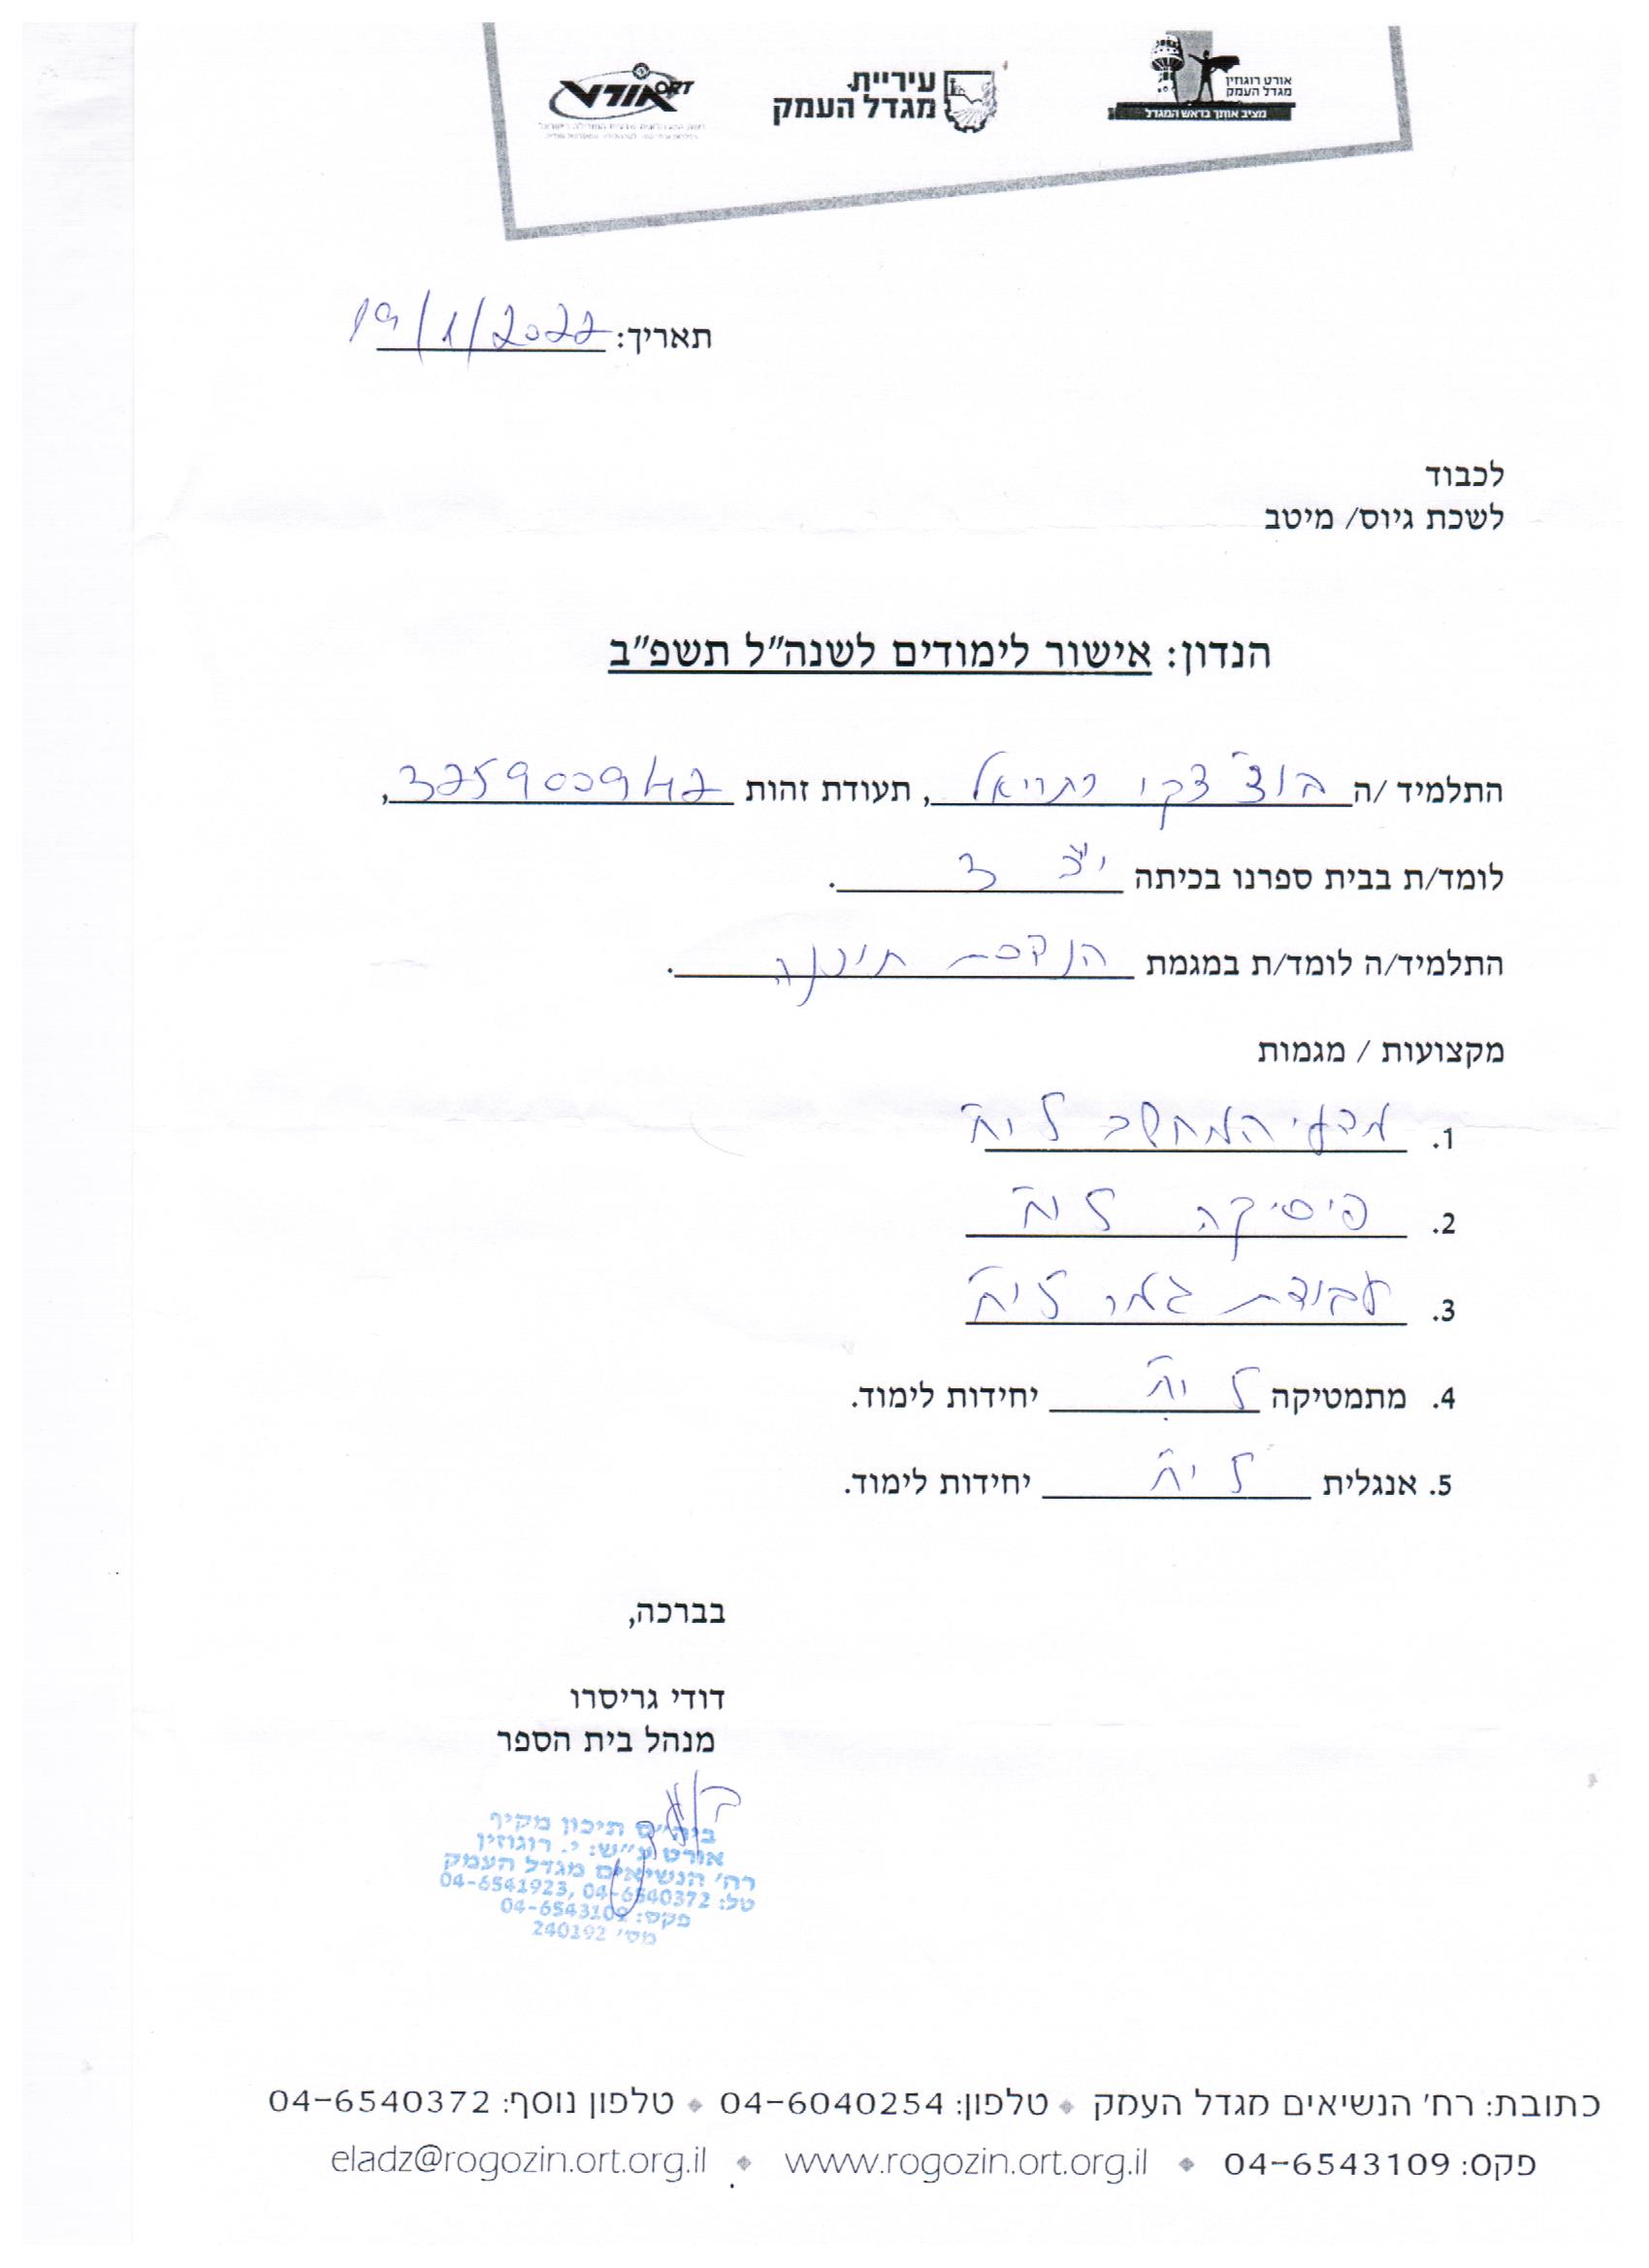 אורט רוגוזין
מגדל העמק
מציב אותך בראש המגדל
עיריית
מגדל העמק
ORT אורט
תאריך: 19/1/2022
לכבוד
לשכת גיוס/ מיטב
הנדון: אישור לימודים לשנה"ל תשפ"ב
התלמיד /ה , תעודת זהות 325900942,
לומד/ת בבית ספרנו בכיתה י"ב 3.
התלמיד/ה לומד/ת במגמת הנדסת תוכנה.
מקצועות / מגמות
1. מדעי המחשב 5 יח'
2. פיסיקה 5 יח'
3. עבודת גמר 5 יח'
4. מתמטיקה 5 יח' יחידות לימוד.
5. אנגלית 5 יח' יחידות לימוד.
בברכה,
דודי גריסרו
מנהל בית הספר
ביה"ס תיכון מקיף
אורט ע"ש: י. רוגוזין
רח' הנשיאים מגדל העמק
טל: 04-6540372 ,04-6541923
פקס: 04-6543109
מס' 240192
כתובת: רח' הנשיאים מגדל העמק ◆ טלפון: 04-6040254 ◆ טלפון נוסף: 04-6540372
פקס: 04-6543109 ◆ www.rogozin.ort.org.il ◆ eladz@rogozin.ort.org.il